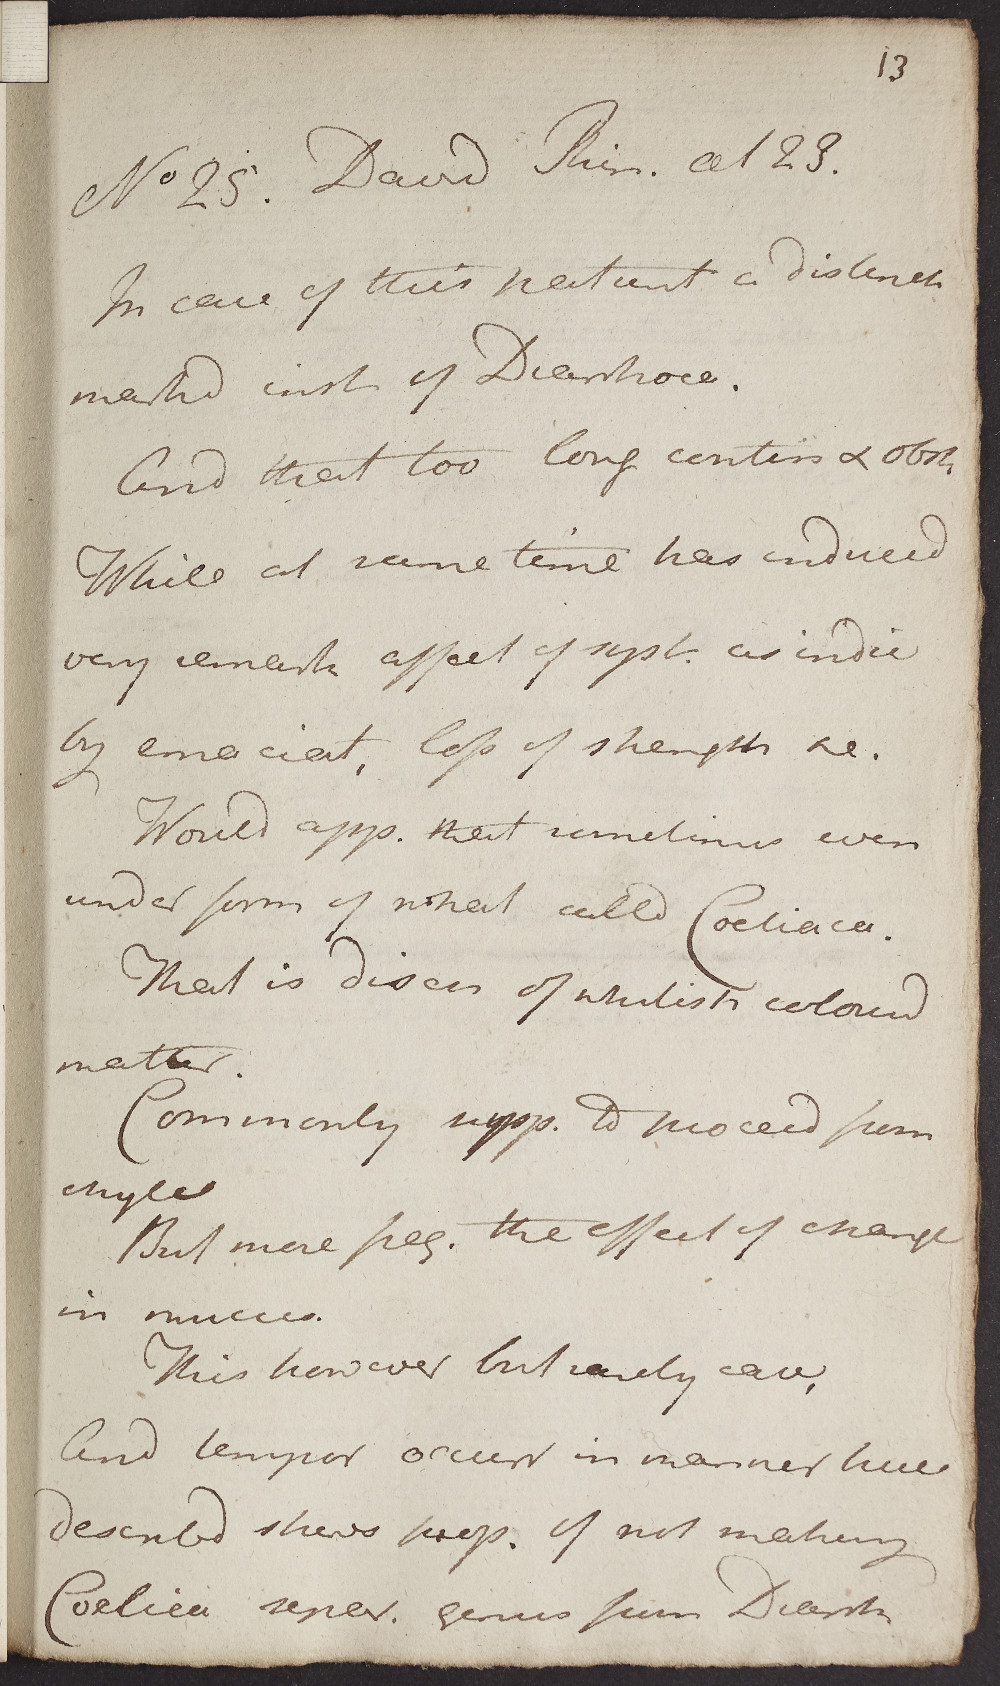 13
No 25. David aet 23.
In case of this patient a distinct
markd inst of Diarrhoea.
And that too long contin & obst.
While at same time has induced
very remark affect of syst. as indic
by emaciat, loss of strength &c.
Would app. that sometimes even
under form of what calld Coeliaca.
That is disch of whitish colourd
matter.
Commonly supp. to proceed from
chyle
But more freq. the effect of change
in mucus.
This however but rarely case,
And tempor occurr in manner here
describd shews prop. of not making
Coelica separ. genus from Diarrh